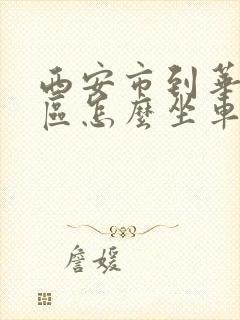 西安市到華
區怎麼坐車
詹媛